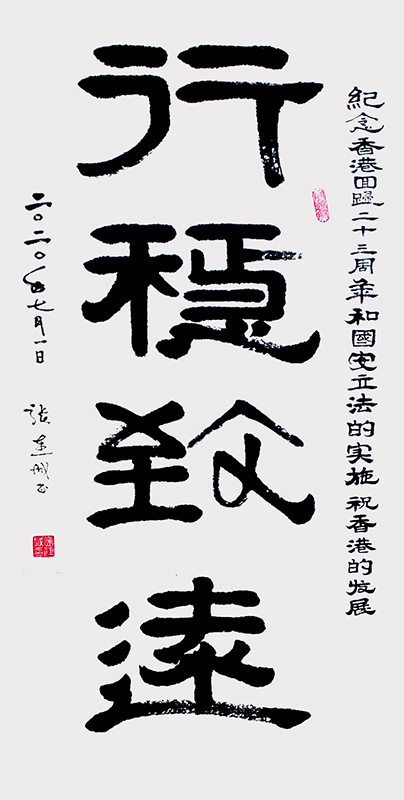 紀念香港回歸二十三周年和國安立法的实施 祝香港的发展
行穩致遠
二〇二〇年七月一日
张建城书